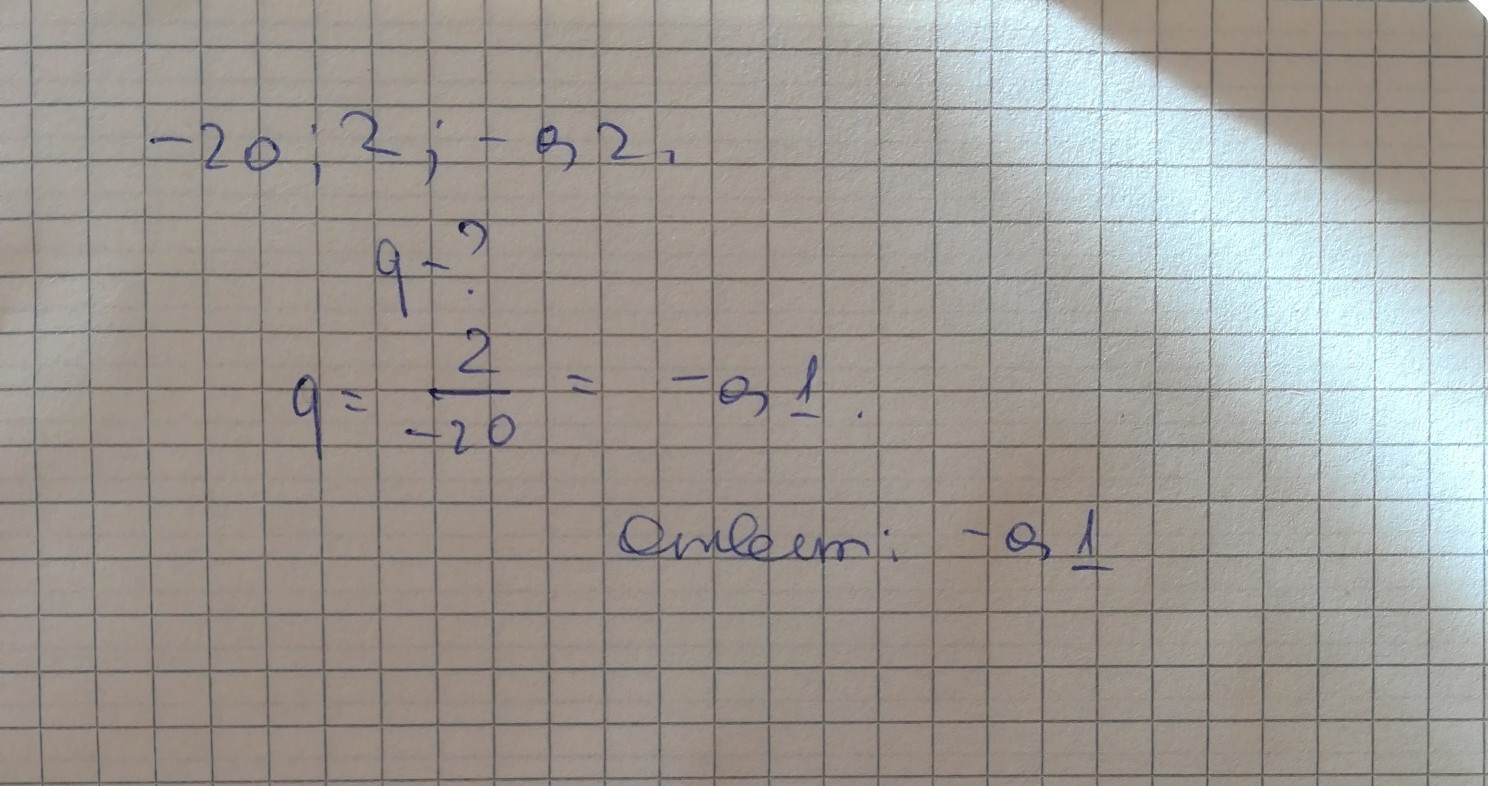 -20; 2; -0,2,
q - ?
q = 2/-20 = -0,1.
Ответ: -0,1